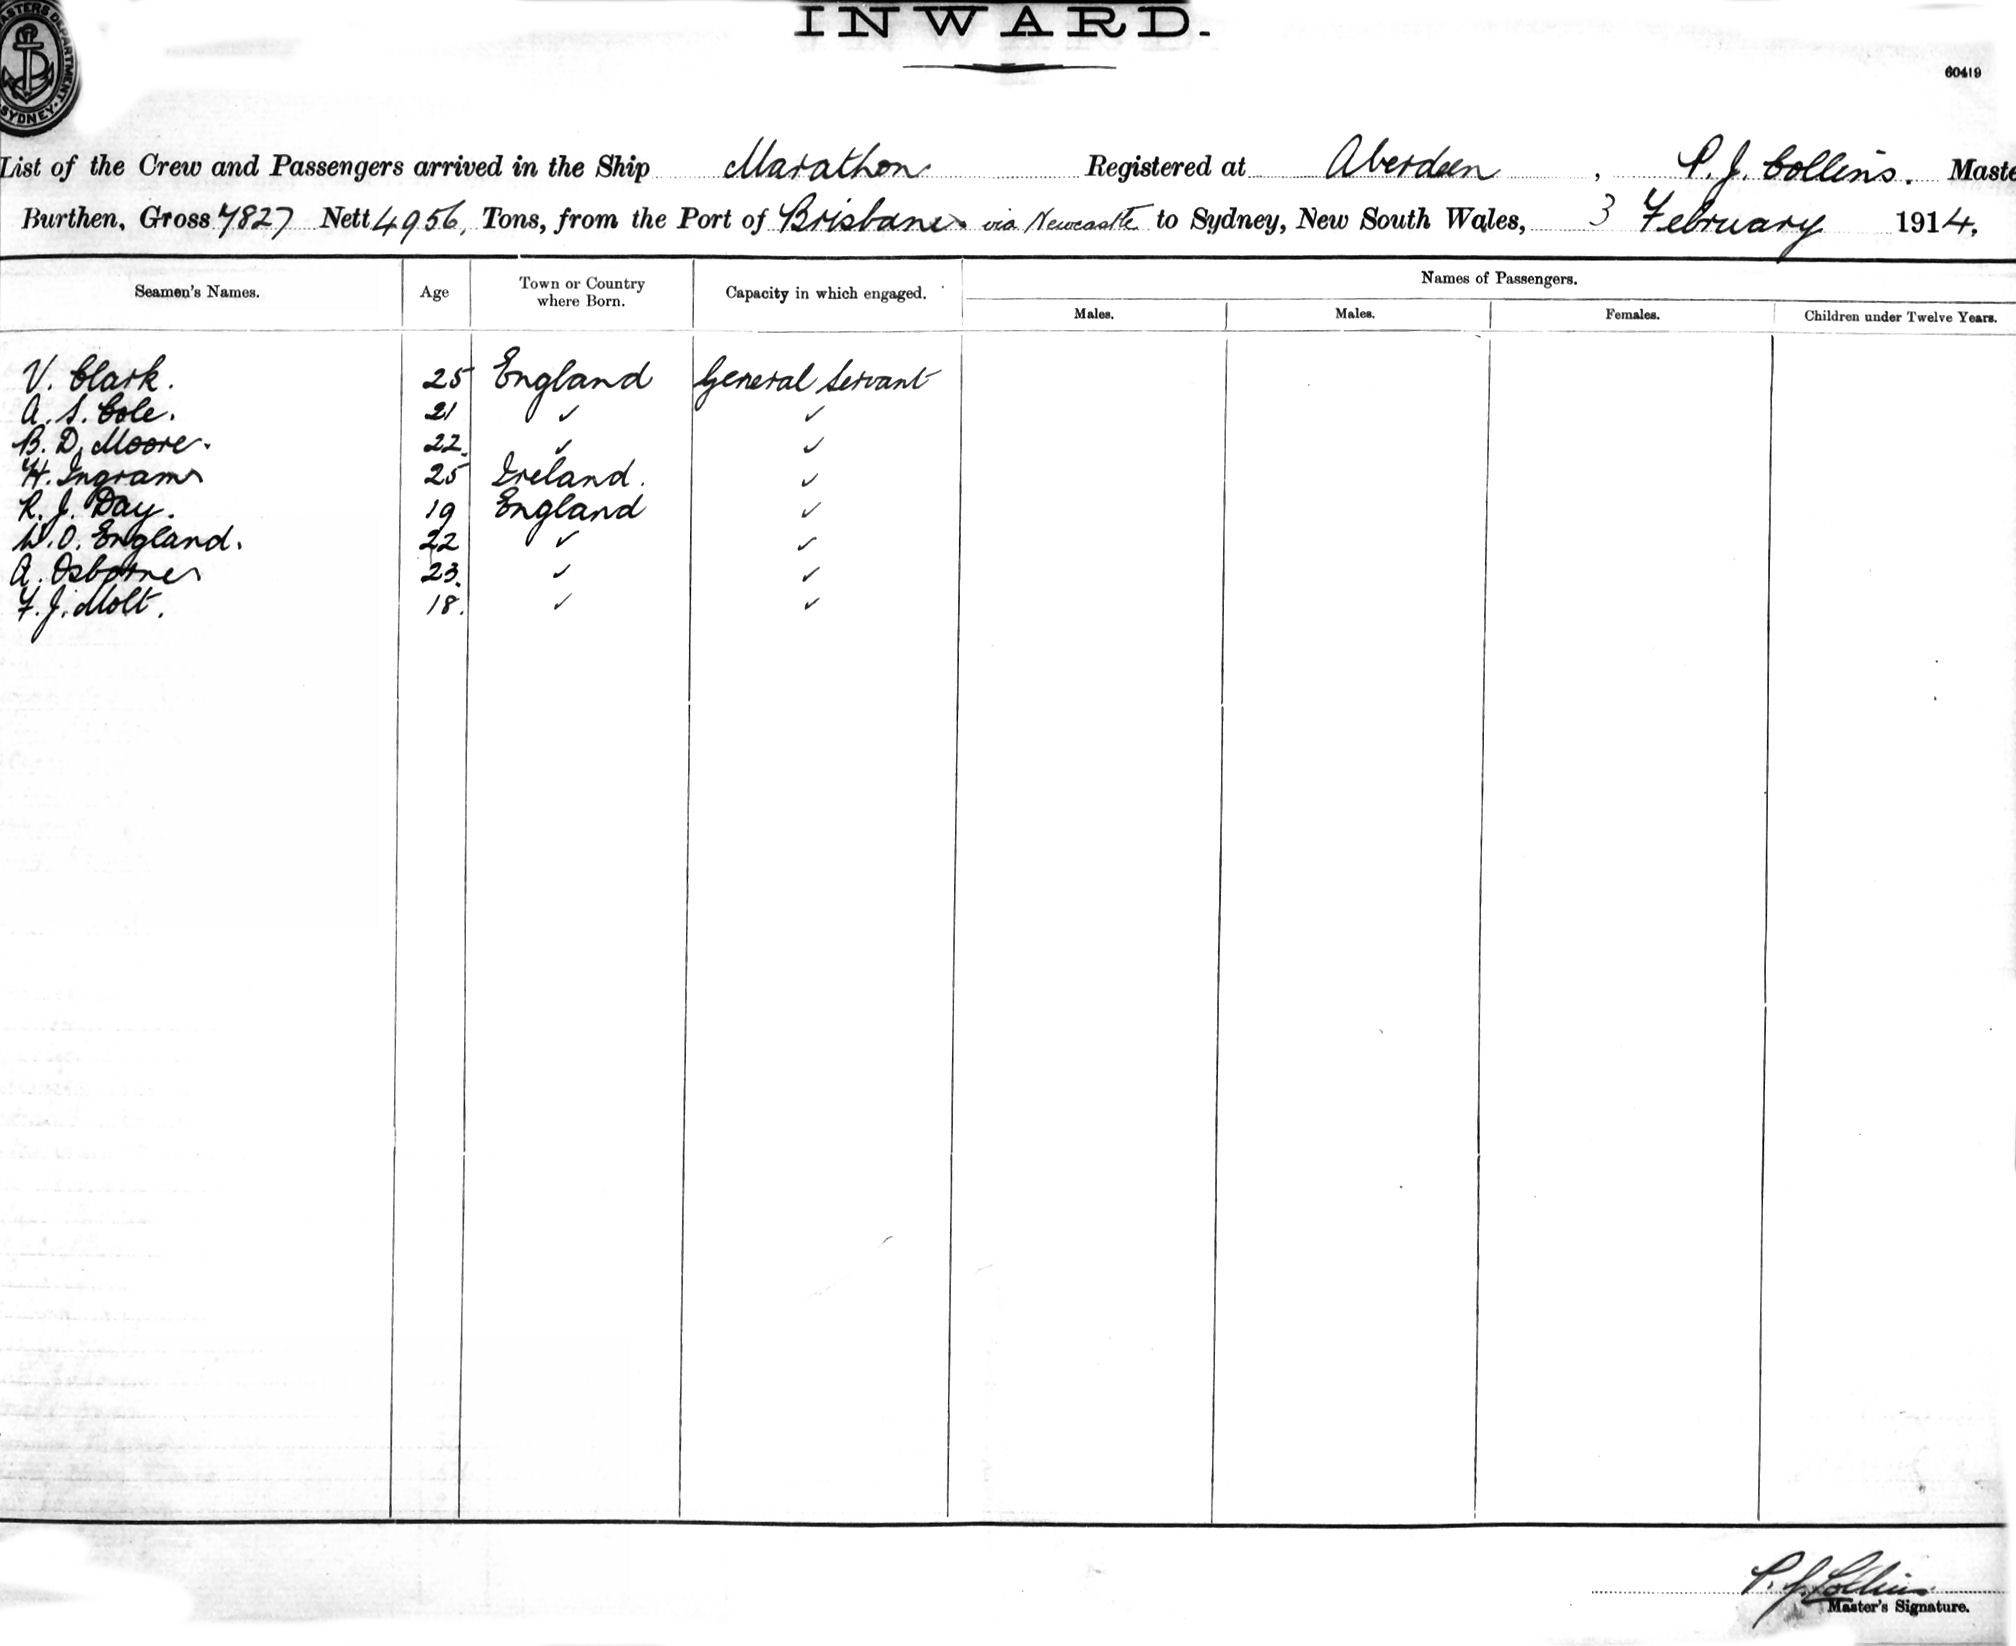 MASTERS DEPARTMENT SYDNEY
INWARD.
60419
List of the Crew and Passengers arrived in the Ship Marathon Registered at Aberdeen, P. J. Collins. Maste
Burthen, Gross 7827 Nett 4956, Tons, from the Port of Brisbane via Newcastle to Sydney, New South Wales, 3 February 1914.
Seamen's Names. Age Town or Country where Born. Capacity in which engaged. Names of Passengers.
Males. Males. Females. Children under Twelve Years.
V. Clark. 25 England General Servant
A. S. Cole. 21 ✓ ✓
B. D. Moore. 22. ✓ ✓
H. Ingram 25 Ireland. ✓
R. J. Day. 19 England ✓
W. O. England. 22 ✓ ✓
A. Osborne 23. ✓ ✓
F. J. Molt. 18. ✓ ✓
P. J. Collins
Master's Signature.